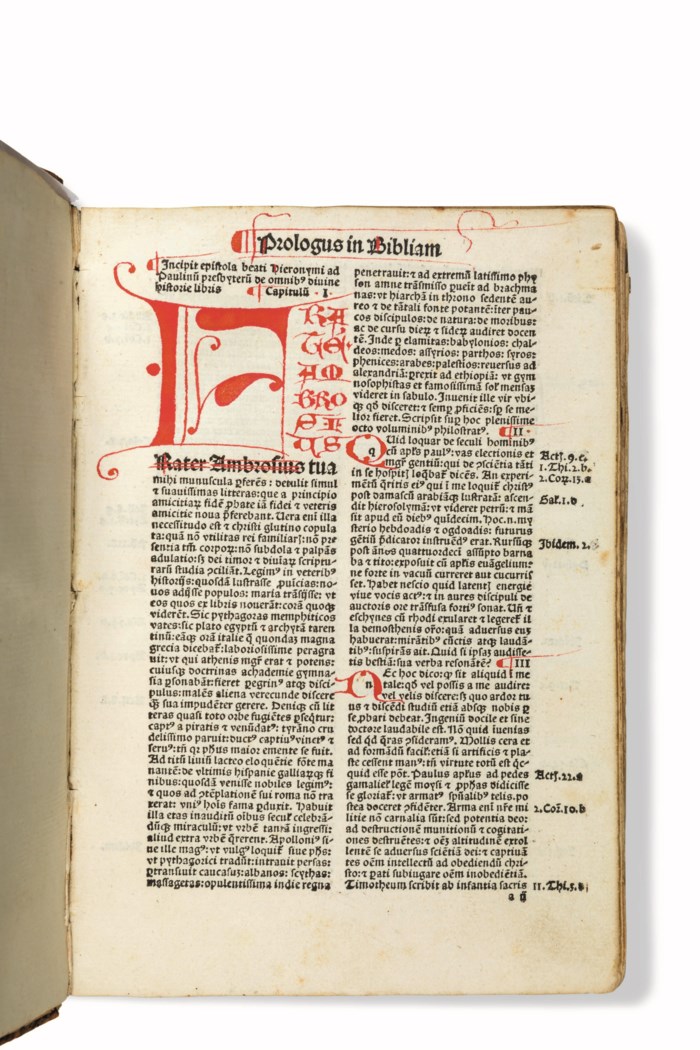 Prologus in Bibliam
Incipit epistola beati Hieronymi ad
Paulinū presbyterū de omnibꝰ diuine
historie libris Capitulū .I.
F
RA
TE
AM
BRO
SI
US
Rater Ambrosius tua
mihi munuscula ꝑferēs: detulit simul
⁊ suauissimas litteras: que a principio
amicitiaꝝ fidē ꝓbate iā fidei ⁊ veteris
amicitie noua p̄ferebant. Uera em̄ illa
necessitudo est ⁊ christi glutino copula
ta: quā nō vtilitas rei familiaꝝ: nō pre
sentia tm̄ corpoꝝ: nō subdola ⁊ palpās
adulatio: sꝫ dei timor ⁊ diuiaꝝ scriptu-
rarū studia ꝓciliāt. Legimꝰ in veteribꝰ
historijs: quosdā lustrasse ꝓuīcias: no-
uos adijsse populos: maria trāsijsse: vt
eos quos ex libris nouerāt: corā quoqꝫ
viderēt. Sic pythagoras memphiticos
vates: sic plato egyptū ⁊ archytā taren
tinū: eāqꝫ orā italie q̄ quondaꝫ magna
grecia dicebaꞇ̄: laboriosissime peragra
uit: vt qui athenis mgr̄ erat ⁊ potens:
cuiusqꝫ doctrinas achademie gymna-
sia ꝑsonabāt: fieret ꝑegrinꝰ atqꝫ disci-
pulus: malēs aliena verecunde discere
qꝫ sua impudēter gerere. Deniqꝫ cū lit
teras quasi toto orbe fugiētes ꝑseq̄tur:
captꝰ a piratis ⁊ venūdatꝰ: tyrāno cru
delissimo paruit: ductꝰ captiuꝰ vinctꝰ ⁊
seruꝰ: tn̄ qr ph̄us maior emente se fuit.
Ad titū liuiū lacteo eloquētie fōte ma
nantē: de vltimis hispanie galliaꝝqꝫ fi
nibus: quosdā venisse nobiles legimꝰ:
⁊ quos ad ꝯtēplationē sui roma nō tra
xerat: vniꝰ hoīs fama ꝑduxit. Habuit
illa etas inauditū oībus seculꝭ celebrā-
dūqꝫ miraculū: vt vrbē tantā ingressi:
aliud extra vrbē q̄rerent. Apolloniꝰ si-
ue ille magꝰ: vt vulgꝰ loquiꞇ̄ siue ph̄s:
vt pythagorici tradūt: intrauit persas:
ꝑtransiuit caucasuꝫ: albanos: scythas:
massagetas: opulentissima indie regna
penetrauit: ⁊ ad extremū latissimo phy
son amne trāsmisso ꝑuēit ad brachma
nas: vt hiarchā in throno sedentē au-
reo ⁊ de tātali fonte potantē: iter pau-
cos discipulos: de natura: de moribus:
ac de cursu dieꝝ ⁊ sideꝝ audiret docen
tē. Inde ꝑ elamitas: babylonios: chal-
deos: medos: assyrios: parthos: syros:
phenices: arabes: palestios: reuersus ad
alexandriā: ꝑrexit ad ethiopiā: vt gym
nosophistas et famosissimā solꝭ mensaꝫ
videret in sabulo. Inuenit ille vir vbi-
qꝫ qd̄ disceret: ⁊ semꝑ ꝓficiēs: sꝑ se me-
lior fieret. Scripsit suꝑ hoc plenissime
octo voluminibꝰ philostratꝰ. II.
Quid loquar de seculi hominibꝰ
q cū apl̄s paulꝰ: vas electionis et
mgr̄ gentiū: qui de ꝯsciētia tāti
in se hospitꝭ loq̄baꞇ̄ dicēs. An experi-
mētū q̄ritis eiꝰ qui ī me loquiꞇ̄ christꝰ
post damascū arabiāqꝫ lustratā: ascen
dit hierosolymā: vt videret petrū: ⁊ mā
sit apud eū diebꝰ quīdecim. Hoc.n.my
sterio hebdoadis ⁊ ogdoadis: futurus
gētiū p̄dicator instruēdꝰ erat. Rursūqꝫ
post ānos quattuordecī assūpto barna
ba ⁊ tito: exposuit cū apl̄is euāgelium:
ne forte in vacuū curreret aut cucurris
set. Habet nescio quid latentꝭ energie
viue vocis actꝰ: ⁊ in aures discipuli de
auctoris ore trāsfusa fortiꝰ sonat. Un̄ ⁊
eschynes cū rhodi exularet ⁊ legereꞇ̄ il
la demosthenis ōro: quā aduersus eum
habuerat: mirātibꝰ cūctis atqꝫ laudā-
tibꝰ: suspirās ait. Quid si ipsaꝫ audisse-
tis bestiā: sua verba resonātē? III
Nec hoc dico: qꝫ sit aliquid ī me
n tale: qd̄ vel possis a me audire:
vel velis discere: sꝫ quo ardor tu
us ⁊ discēdi studiū etiā absqꝫ nobis ꝑ
se ꝓbari debeat. Ingeniū docile et sine
doctore laudabile est. Nō quid iuenias
sed qd̄ q̄ras ꝯsideramꝰ. Mollis cera et
ad formādū facilꝭ: etiā si artificis ⁊ pla-
ste cessent manꝰ: tn̄ virtute totū est qc̄-
quid esse pōt. Paulus apl̄us ad pedes
gamalielꝭ legē moysi ⁊ ꝓphās didicisse
se gloriaꞇ̄: vt armatꝰ spūalibꝰ telis. po
stea doceret ꝯfidēter. Arma em̄ nr̄e mi
litie nō carnalia sūt: sed potentia deo:
ad destructionē munitionū ⁊ cogitati-
ones destruētes: ⁊ oēs altitudinē extol
lentē se aduersus sciētiā dei: ⁊ captiuā
tes oēm intellectū ad obediendū chri-
sto: ⁊ ꝑati subiugare oēm inobediētiā.
Timotheum scribit ab infantia sacris
a ij
Act. 9.c.
1. Thi. 2.b.
2. Coꝝ. 13.a
Gal. 1.d.
Ibidem. 2.
Act. 22.a
2. Coꝝ. 10.b
II. Thi. 3.d